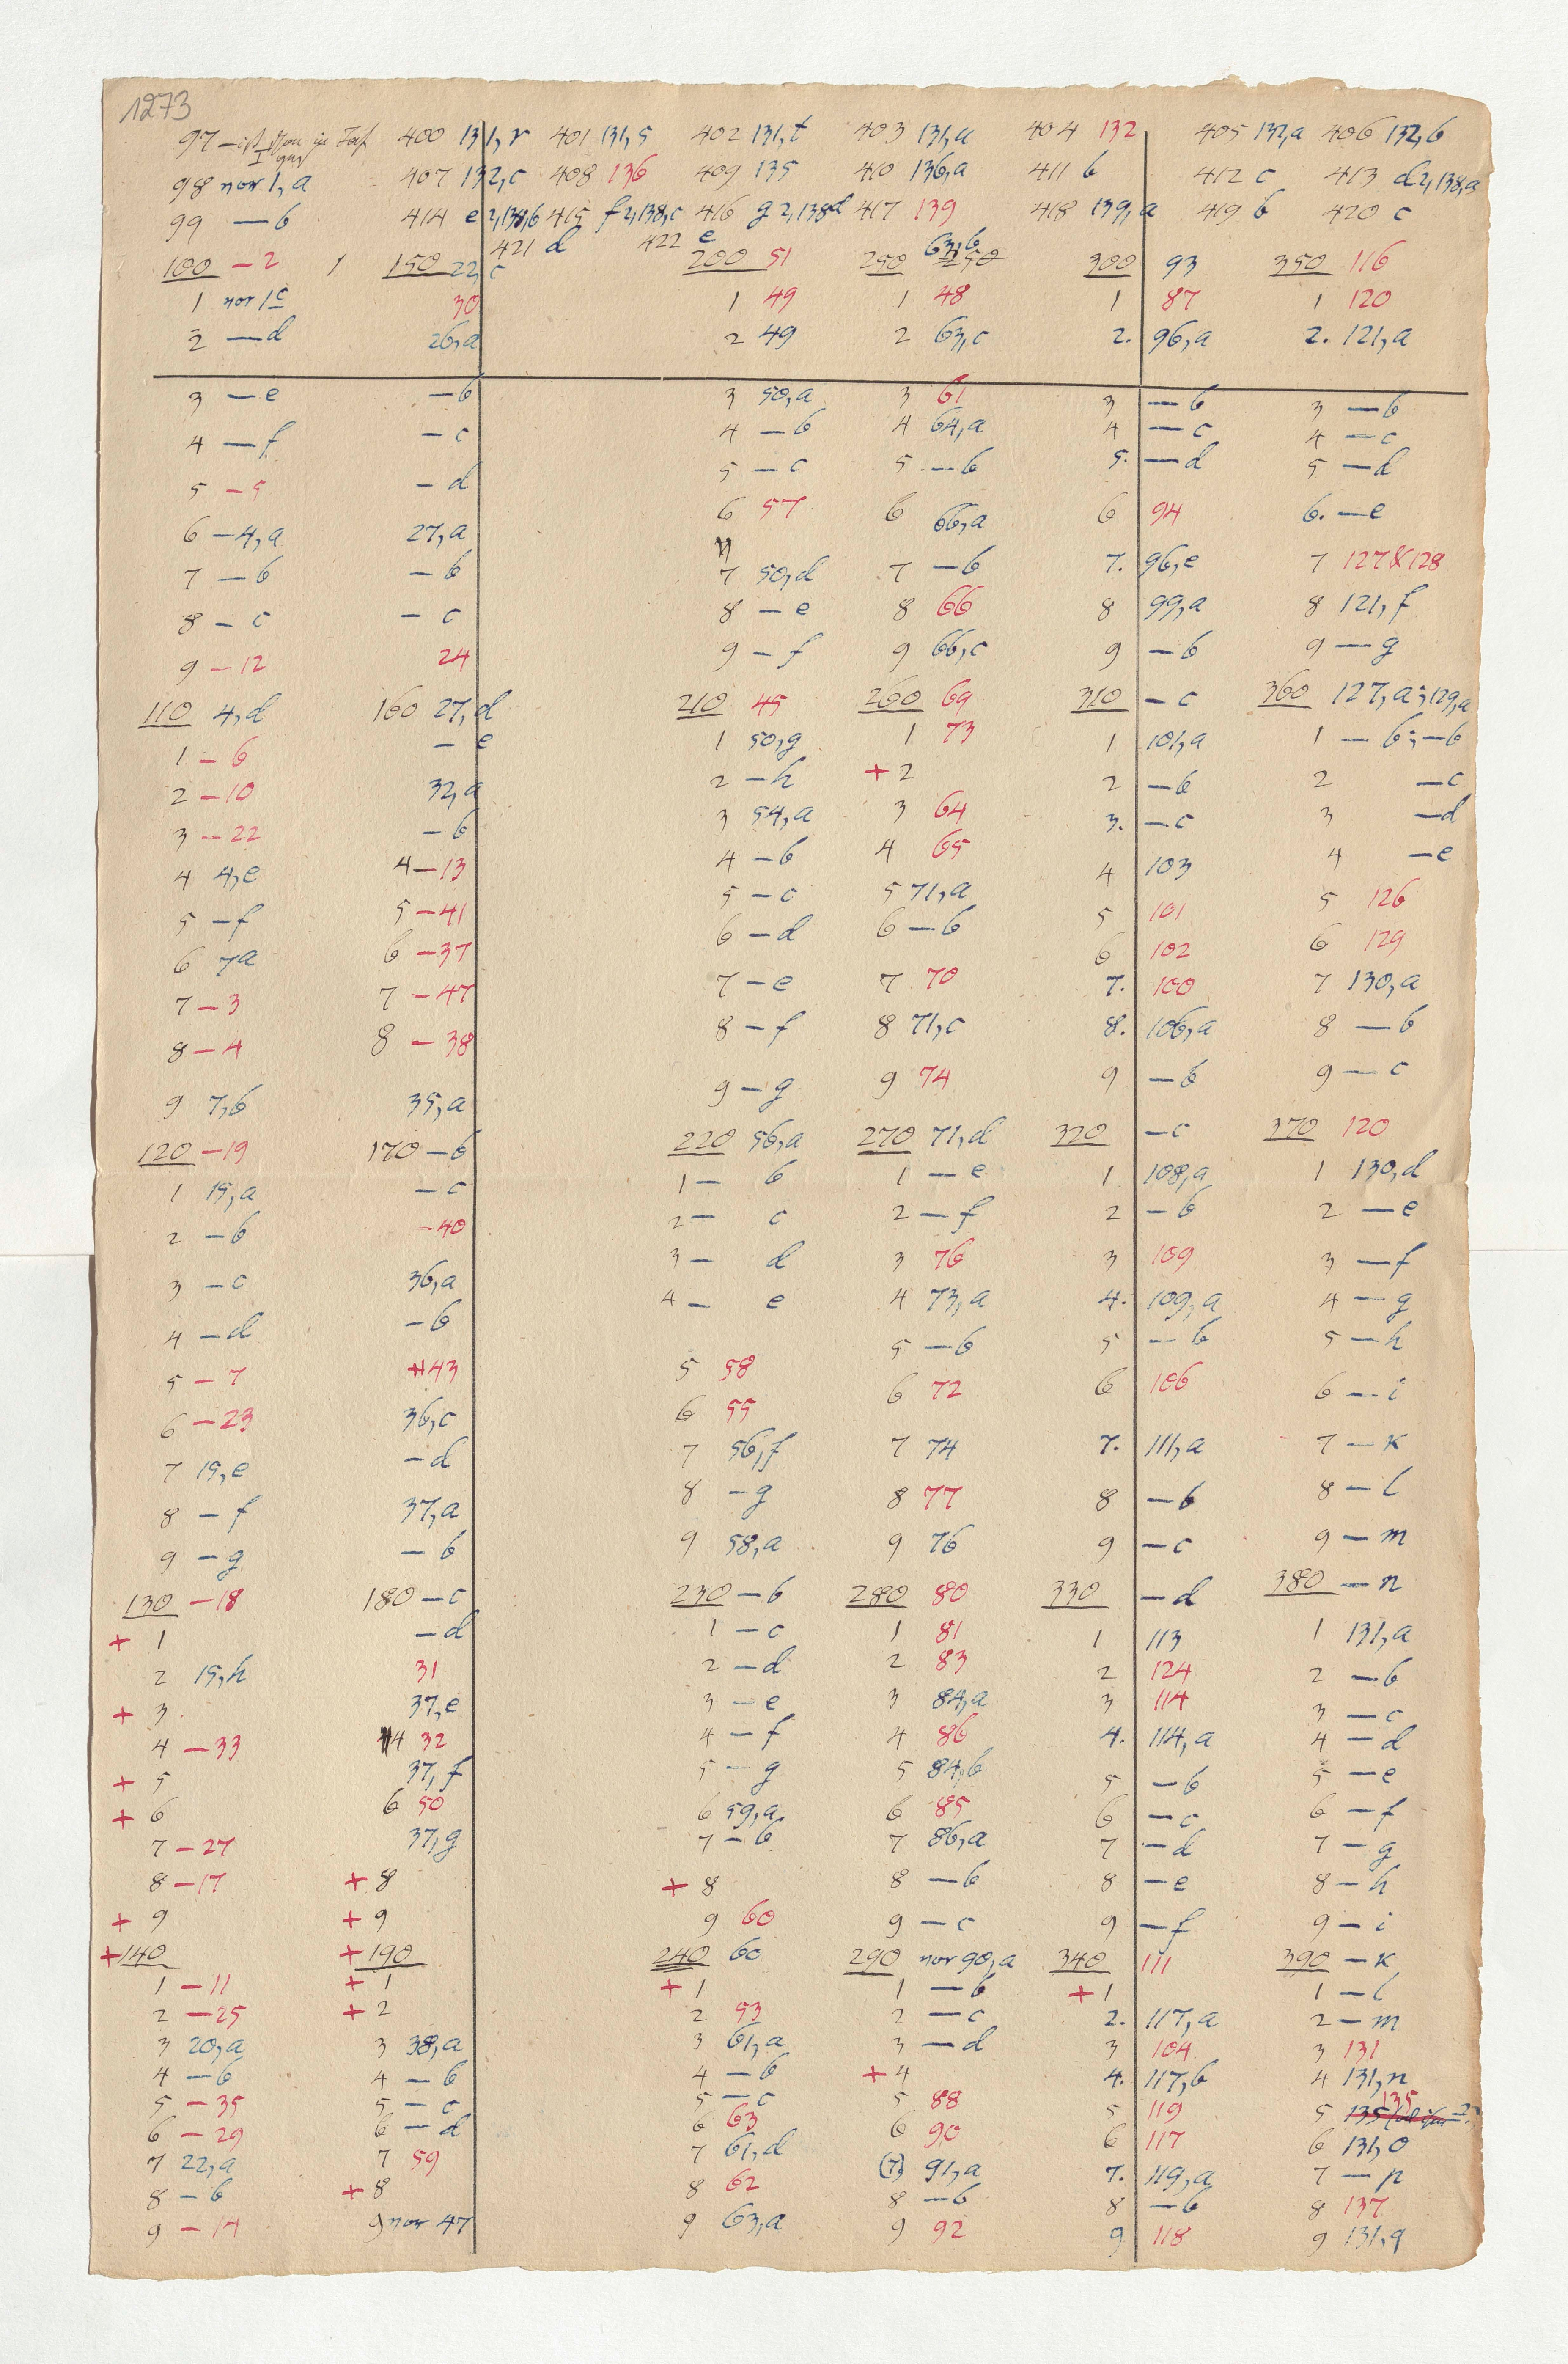 1273
97 – ist schon in 400 131,r 401 131,s 402 131,t 403 131,u 404 132 405 132,a 406 132,b
98 vor 1,a 407 132,c 408 136 409 135 410 136,a 411 b 412 c 413 d 2,138,a
99 — b 414 e 2,138,b 415 f 2,138,c 416 g 2,138d 417 139 418 139,a 419 b 420 c
421 d 422 e
100 – 2 1 150 22,c 200 51 250 63,b 300 93 350 116
1 vor 1c 30 1 49 1 48 1 87 1 120
2 — d 26,a 2 49 2 63,c 2. 96,a 2. 121,a
3 — e – b 3 50,a 3 61 3 — b 3 — b
4 — f – c 4 – b 4 64,a 4 — c 4 — c
5 – 5 – d 5 – c 5 – b 5. — d 5 — d
6 – 4,a 27,a 6 57 6 66,a 6 94 6. — e
7 – b – b 7 50,d 7 – b 7. 96,e 7 127 & 128
8 – c – c 8 – e 8 66 8 99,a 8 121,f
9 – 12 24 9 – f 9 66,c 9 – b 9 — g
110 4,d 160 27,d 210 45 260 69 310 – c 360 127,a; 129,a
1 – 6 – e 1 50,g 1 73 1 101,a 1 — b; – b
2 – 10 32,a 2 – h + 2 2 – b 2 – c
3 – 22 – b 3 54,a 3 64 3. – c 3 – d
4 4,e 4 – 13 4 – b 4 65 4 103 4 – e
5 – f 5 – 41 5 – c 5 71,a 5 101 5 126
6 7a 6 – 37 6 – d 6 – b 6 102 6 129
7 – 3 7 – 47 7 – e 7 70 7. 100 7 130,a
8 – 4 8 – 38 8 – f 8 71,c 8. 106,a 8 — b
9 7,b 35,a 9 – g 9 74 9 – b 9 — c
120 – 19 170 – b 220 56,a 270 71,d 320 – c 370 120
1 15,a – c 1 – b 1 — e 1 108,a 1 130,d
2 – b – 40 2 – c 2 — f 2 – b 2 — e
3 – c 36,a 3 – d 3 76 3 109 3 — f
4 – d – b 4 – e 4 73,a 4. 109,a 4 — g
5 – 7 43 5 58 5 – b 5 – b 5 — h
6 – 23 36,c 6 55 6 72 6 106 6 — i
7 15,e – d 7 56,f 7 74 7. 111,a 7 — k
8 – f 37,a 8 – g 8 77 8 – b 8 — l
9 – g – b 9 58,a 9 76 9 – c 9 — m
130 – 18 180 – c 230 – b 280 80 330 – d 380 — n
+ 1 – d 1 – c 1 81 1 113 1 131,a
2 15,h 31 2 – d 2 83 2 124 2 – b
+ 3 37,e 3 – e 3 84,a 3 114 3 – c
4 – 33 4 32 4 – f 4 86 4. 114,a 4 – d
+ 5 37,f 5 – g 5 84,b 5 – b 5 – e
+ 6 6 50 6 59,a 6 85 6 – c 6 – f
7 – 27 37,g 7 – b 7 86,a 7 – d 7 – g
8 – 17 + 8 + 8 8 – b 8 – e 8 – h
+ 9 + 9 9 60 9 – c 9 – f 9 – i
+ 140 + 190 240 60 290 vor 90,a 340 111 390 – k
1 – 11 + 1 + 1 1 – b + 1 1 – l
2 – 25 + 2 2 53 2 – c 2. 117,a 2 – m
3 20,a 3 38,a 3 61,a 3 – d 3 104 3 131
4 – b 4 – b 4 – b + 4 4. 117,b 4 131,n
5 – 35 5 – c 5 – c 5 88 5 119 5 135
6 – 29 6 – d 6 63 6 90 6 117 6 131,o
7 22,a 7 59 7 61,d (7) 91,a 7. 119,a 7 – p
8 – b + 8 8 62 8 – b 8 – b 8 137
9 – 14 9 vor 47 9 63,a 9 92 9 118 9 131,q